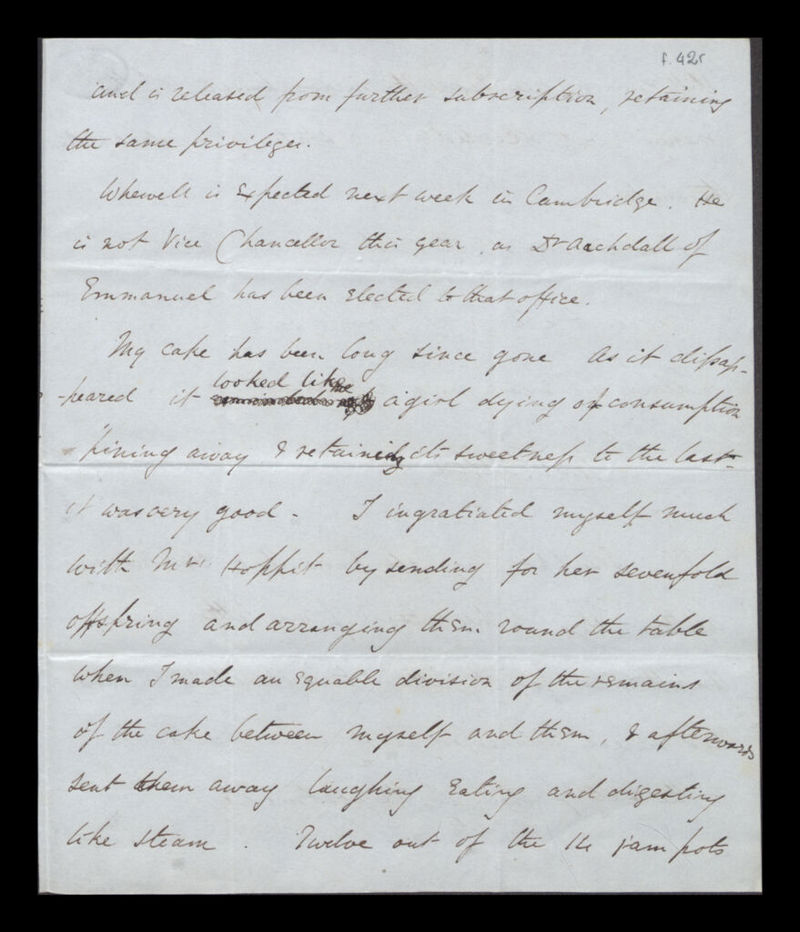 f. 42r
and is released from further subscription, retaining
the same privileges.
Whewell is Expected next week in Cambridge. He
is not Vice Chancellor this year, as Dr Aachdall of
Emmanuel has been Elected to that office.
My cake has been long since gone As it disap-
looked like
-peared it a girl dying of consumption
"pining away & retaining its sweetness to the last-
it was very good - I ingratiated myself much
with Mrs. Hoppit by sending for her sevenfold
offspring and arranging them round the table
when I made an Equable division of the remains
of the cake between myself and them, & afterwards
sent them away laughing Eating and digesting
like steam. Twelve out of the 14 jam pots